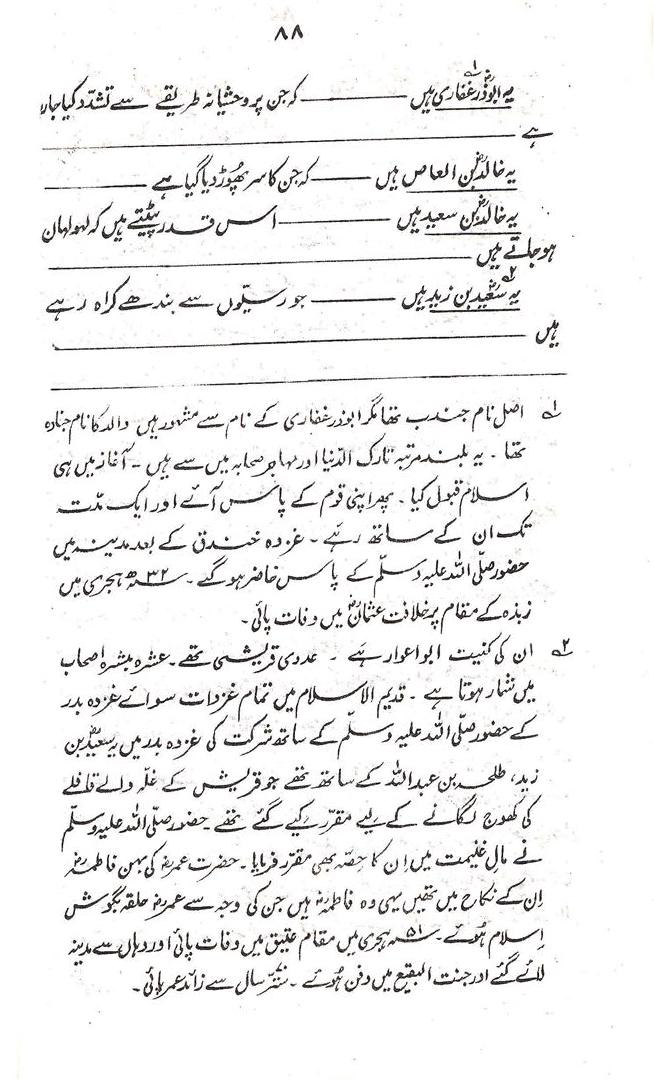 ۸۸
یہ ابوذرؓ غفاری ہیں ۱؎ ——— کہ جن پر وحشیانہ طریقے سے تشدّد کیا جارہا
ہے ———
یہ خالدؓ بن العاص ہیں ——— کہ جن کا سر پھوڑ دیا گیا ہے ———
یہ خالدؓ بن سعید ہیں ——— اس قدر پیٹتے ہیں کہ لہولہان
ہو جاتے ہیں ———
یہ سعیدؓ بن زید ہیں ۲؎ ——— جو رسیّوں سے بندھے کراہ رہے
ہیں ———
۱؎ اصل نام جندب تھا مگر ابوذر غفاری کے نام سے مشہور ہیں والد کا نام جنادہ
تھا ۔ یہ بلند مرتبہ تارک الدّنیا اور مہاجر صحابہ میں سے ہیں ۔ آغاز میں ہی
اسلام قبول کیا ۔ پھر اپنی قوم کے پاس آئے اور ایک مدّت
تک ان کے ساتھ رہے ۔ غزدہ خندق کے بعد مدینہ میں
حضور صلّی اللہ علیہ وسلّم کے پاس حاضر ہو گئے ۔ ۳۲ھ ہجری میں
زبذہ کے مقام پر خلافت عثمانؓ میں وفات پائی ۔
۲؎ ان کی کنیت ابو اعوار ہے ۔ عددی قریشی تھے ۔ عشرہ مبشرہ اصحاب
میں شمار ہوتا ہے ۔ قدیم الاسلام میں تمام غزدات سوائے غزدہ بدر
کے حضور صلّی اللہ علیہ وسلّم کے ساتھ شرکت کی غزدہ بدر میں یہ سعیدؓ بن
زید، طلحہ بن عبد اللہ کے ساتھ تھے جو قریش کے غلّہ والے قافلے
کی کھوج لگانے کے لیے مقرّر کیے گئے تھے ۔ حضور صلّی اللہ علیہ وسلّم
نے مالِ غنیمت میں اِن کا حصّہ بھی مقرر فرمایا ۔ حضرت عمرؓ کی بہن فاطمہؓ
اِن کے نکاح میں تھیں یہی وہ فاطمہؓ ہیں جن کی وجہ سے عمرؓ حلقہ بگوش
اِسلام ہُوئے ۔ ۵۱ھ ہجری میں مقام عتیق میں وفات پائی اور وہاں سے مدینہ
لائے گئے اور جنت البقیع میں دفن ہُوئے ۔ ستّر سال سے زائد عمر پائی ۔